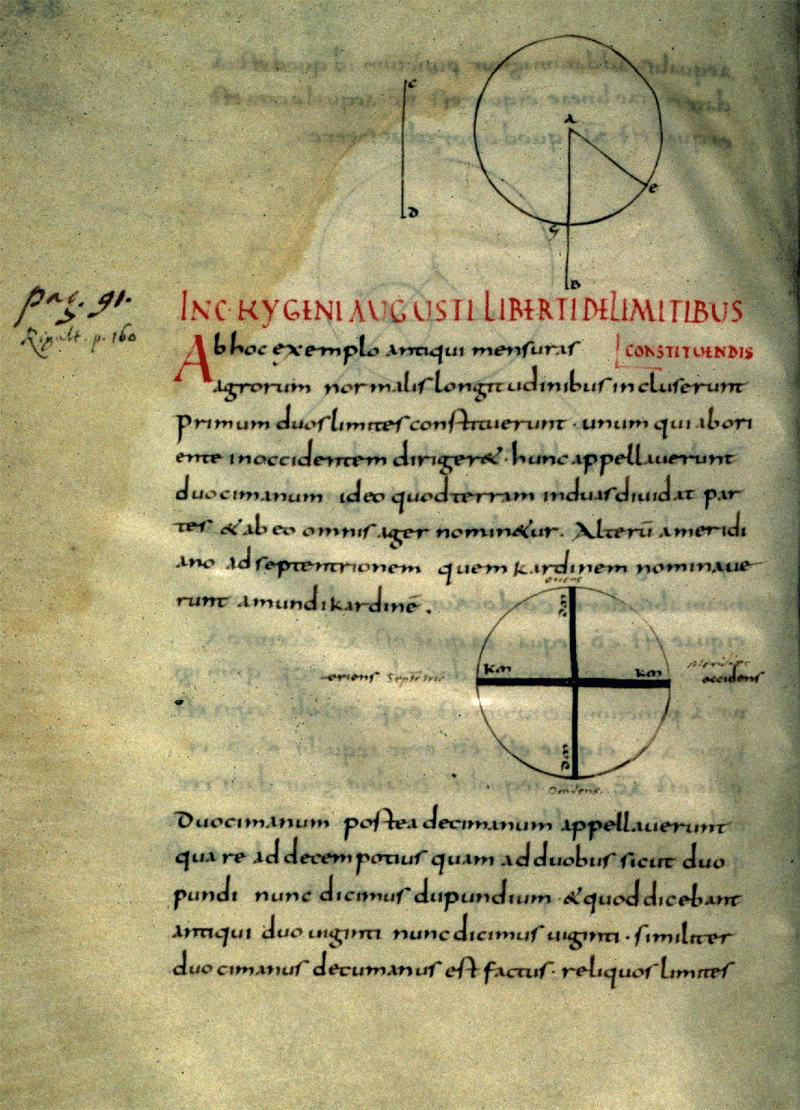 C
A
e
D
G
B
pag. 91.
Rigalt. p. 160
INC· KYGINI AUGUSTI LIBERTI DE LIMITIBUS
CONSTITUENDIS
Ab hoc exemplo antiqui mensuras
agrorum normalis longitudinibus incluserunt
primum duos limites constituerunt · unum qui ab ori
ente in occidentem diriger& · hunc appellauerunt
duocimanum ideo quod terram in duas diuidat par
tes & ab eo omnis ager nomin&ur. Alterū a meridi
ano ad septentrionem quem kardinem nominaue
runt a mundi kardinē.
oriens
DM
KM KM
oriens Septentrio
Meridies
occidens
DM
Occidens.
Duocimanum postea decimanum appellauerunt
qua re ad decem potius quam ad duobus sicut duo
pundi nunc dicimus dupundium & quod dicebant
antiqui duo uiginti nunc dicimus uiginti · similiter
duocimanus decumanus est factus · reliquos limites